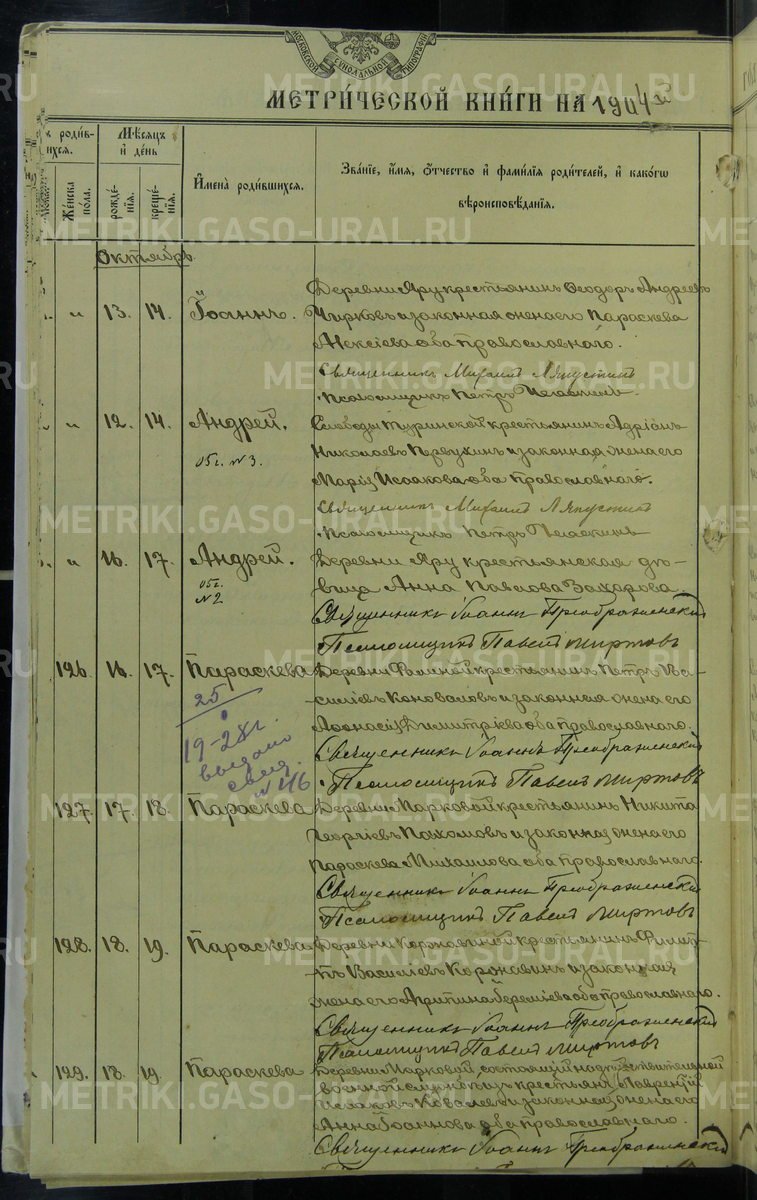 МОСКОВСКОЙ СѴНОДАЛЬНОЙ ТИПОГРАФІИ
МЕТРИ́ЧЕСКОЙ КНИ́ГИ НА 1904й
роди́в-
ихсѧ.
Же́нска по́ла.
Мѣ́сѧцъ и҆ де́нь
рожде́нїѧ.
креще́нїѧ.
И҆мена̀ роди́вшихсѧ.
Зва́нїе, и҆́мѧ, ѻ҆́тчество и҆ фами́лїѧ роди́телей, и҆ како́гѡ
вѣроисповѣ́данїѧ.
Октябрь
„ 13. 14. Іоаннъ. Деревни Яру крестьянинъ Ѳеодоръ Андреевъ
Чирковъ и законная жена его Параскева
Алексіева оба православнаго.
Священникъ Михаилъ Ляпустинъ
Псаломщикъ Петръ
„ 12. 14. Андрей. Слободы Туринской крестьянинъ Адріанъ
Николаевъ Первухинъ и законная жена его
05 г. № 3. Марія Исаакова оба православнаго.
Священникъ Михаилъ Ляпустинъ
Псаломщикъ Петръ
„ 16. 17. Андрей. Деревни Яру крестьянская дѣ-
05 г. № 2 вица Анна Павлова Захарова.
Священникъ Іоаннъ Преображенскій
Псаломщикъ Павелъ Миртовъ
126. 16. 17. Параскева Деревни крестьянинъ Петръ Ва-
силіевъ Коноваловъ и законная жена его
25
19-28 г. выдано № 416
Аѳанасія Димитріева оба православнаго.
Священникъ Іоаннъ Преображенскій
Псаломщикъ Павелъ Миртовъ
127. 17. 18. Параскева Деревни Марковой крестьянинъ Никита
Георгіевъ Пахомовъ и законная жена его
Параскева Михаилова оба православнаго.
Священникъ Іоаннъ Преображенскій
Псаломщикъ Павелъ Миртовъ
128. 18. 19. Параскева Деревни Короповиной крестьянинъ Филип-
пъ Василіевъ и законная
жена его Агрипина Іереміева оба православнаго.
Священникъ Іоаннъ Преображенскій
Псаломщикъ Павелъ Миртовъ
129. 18. 19. Параскева Деревни Марковой, состоящій на дѣйствительной
военной службѣ изъ крестьянъ Лаврентій
Исааковъ Ковалевъ и законная жена его
Анна Іоаннова оба православнаго.
Священникъ Іоаннъ Преображенскій
METRIKI.GASO-URAL.RU